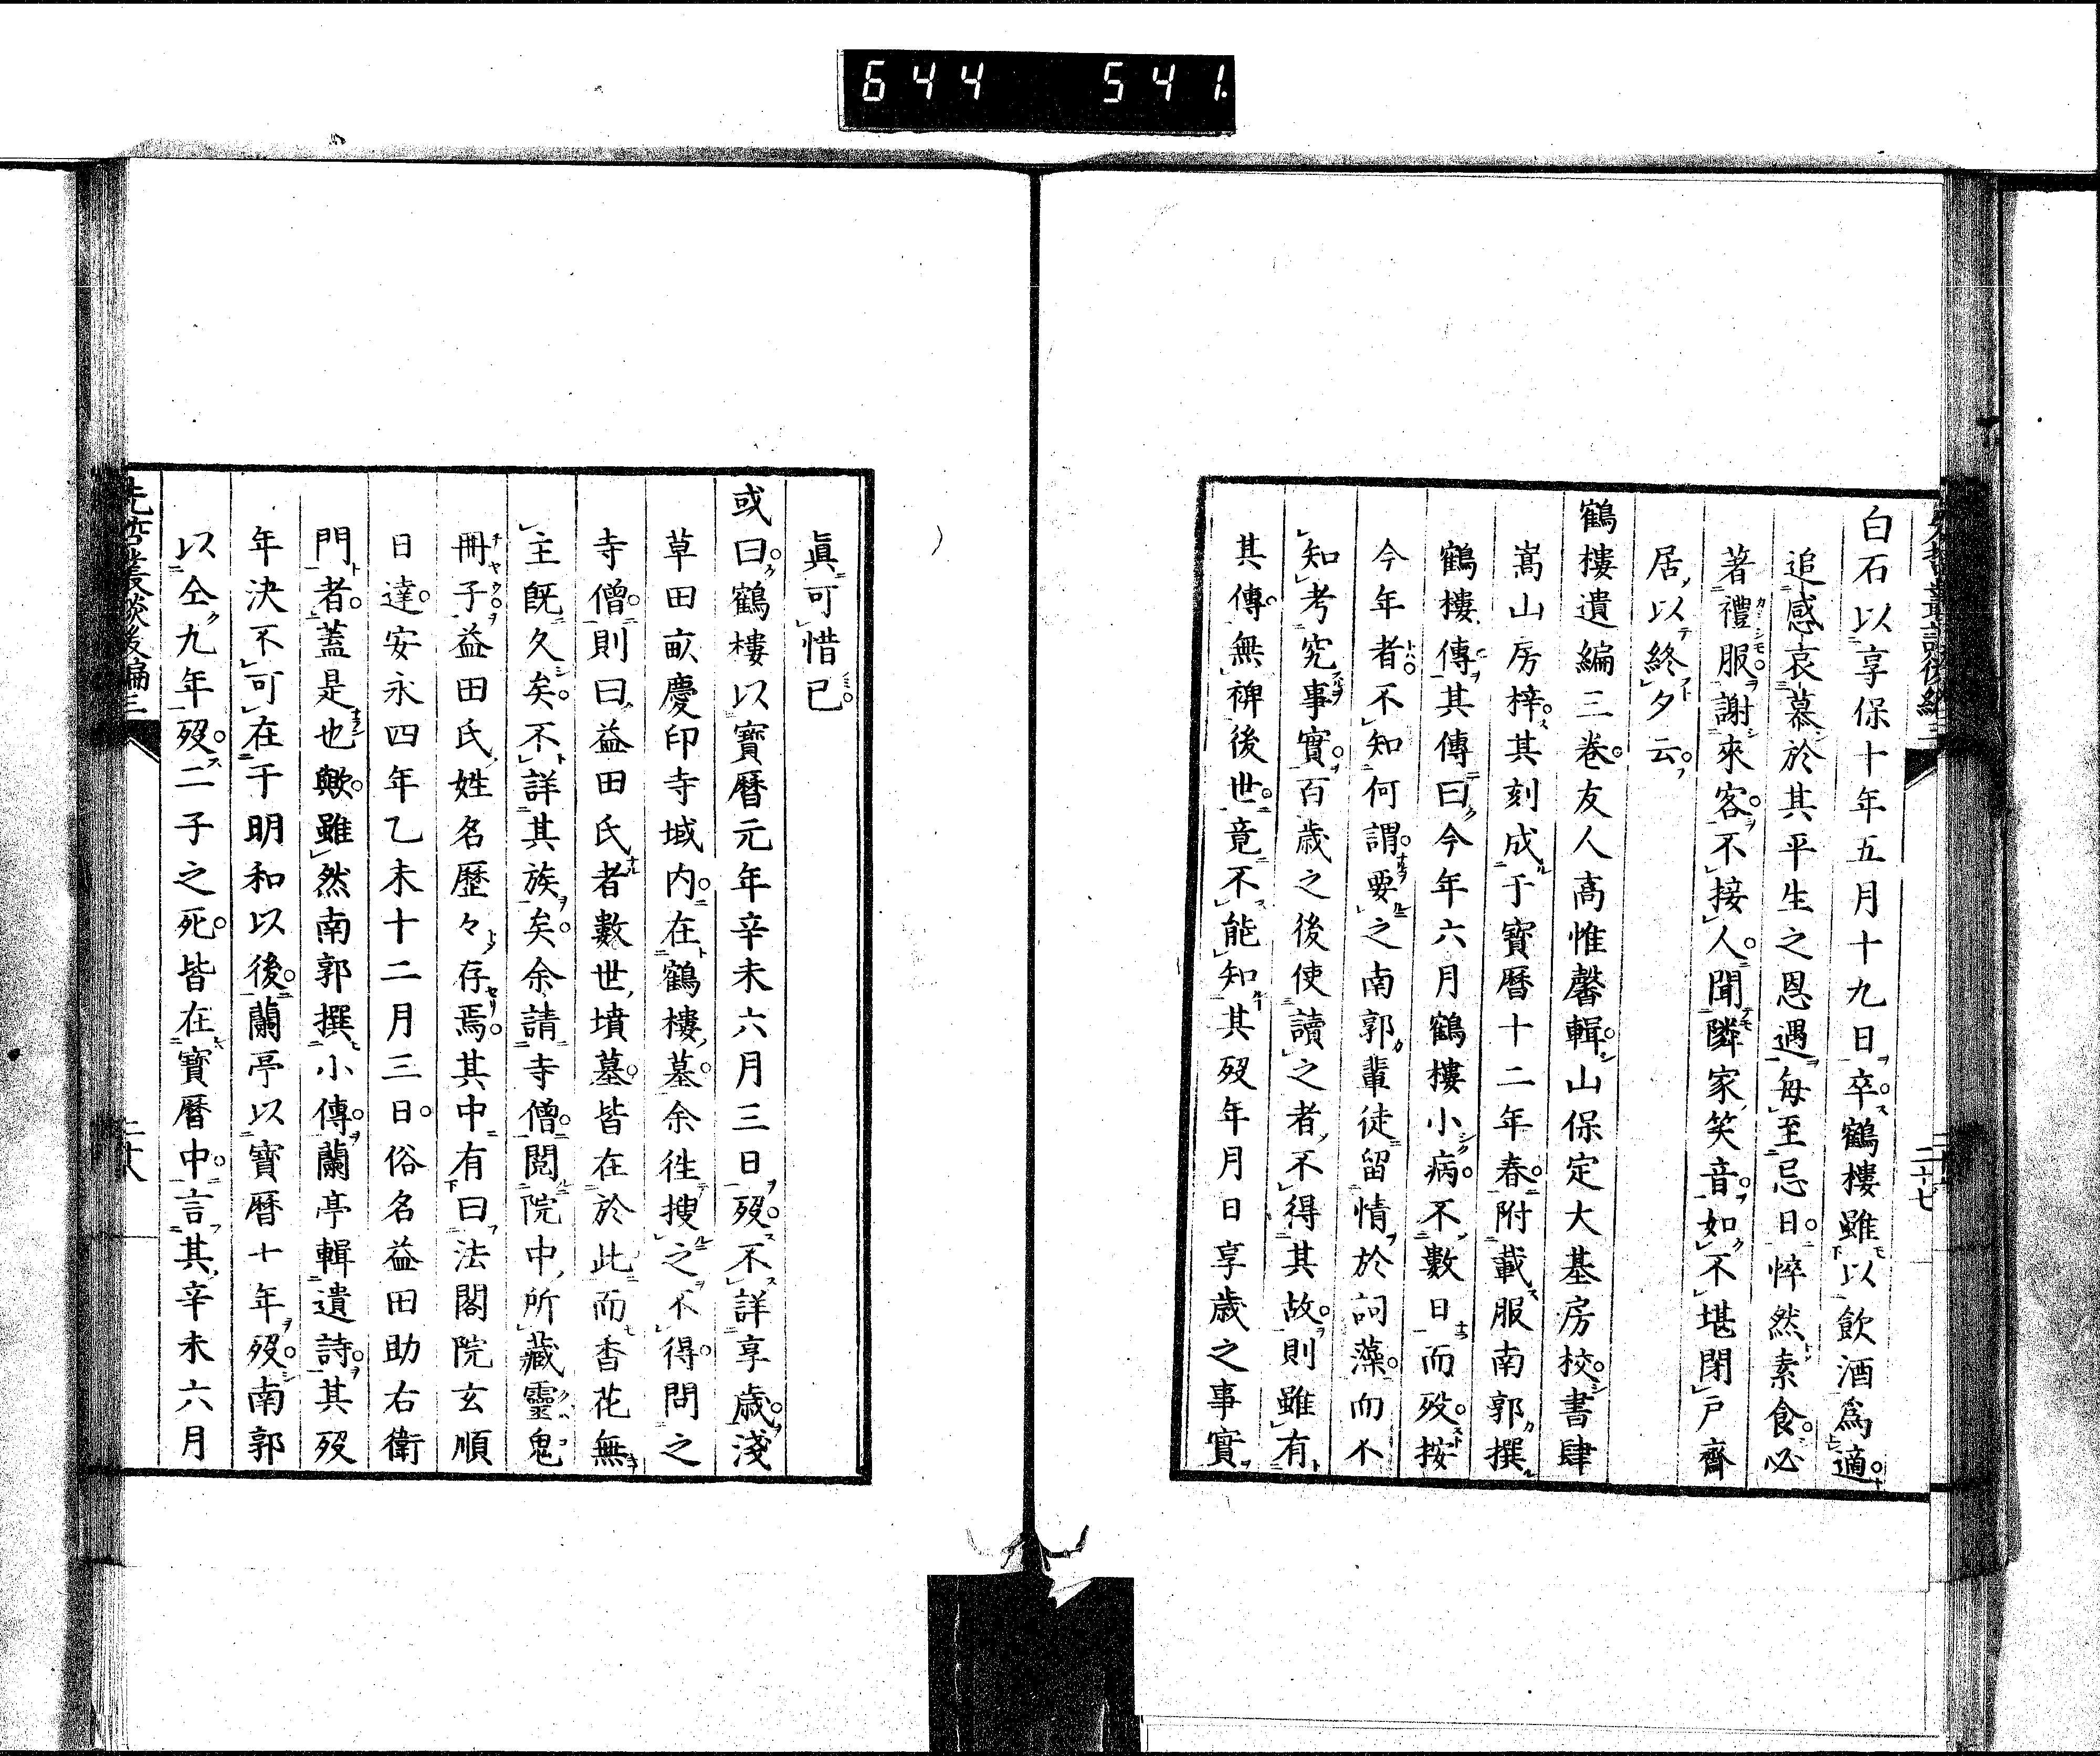 644 541.
白石以享保十年五月十九日卒鶴樓雖以飲酒爲適
追感哀慕於其平生之恩遇每至忌日悴然素食必
著禮服謝來客不接人聞隣家笑音如不堪閉戸齊
居以終夕云
鶴樓遺編三卷友人高惟馨輯山保定大基房校書肆
嵩山房梓其刻成于寶曆十二年春附載服南郭撰
鶴樓傳其傳曰今年六月鶴樓小病不數日而歿按
今年者不知何謂要之南郭輩徒留情於詞藻而不
知考究事實百歲之後使讀之者不得其故則雖有
其傳無裨後世竟不能知其歿年月日享歲之事實
二十七
眞可惜已
或曰鶴樓以寶曆元年辛未六月三日歿不詳享歲淺
草田畝慶印寺域内在鶴樓墓余往搜之不得問之
寺僧則曰益田氏者數世墳墓皆在於此而香花無
主既久矣不詳其族矣余請寺僧閲院中所藏靈鬼
冊子益田氏姓名歷々存焉其中有曰法閣院玄順
日達安永四年乙未十二月三日俗名益田助右衛
門者蓋是也歟雖然南郭撰小傳蘭亭輯遺詩其歿
年決不可在于明和以後蘭亭以寶曆十年歿南郭
以仝九年歿二子之死皆在寶曆中言其辛未六月
先哲叢談後編三